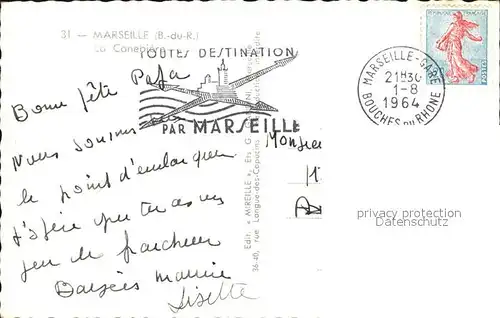 31 — MARSEILLE (B.-du-R.)
La Canebière
TOUTES DESTINATIONS
PAR MARSEILLE
MARSEILLE-GARE
21H30
1-8
1964
BOUCHES DU RHONE
POSTES
Bonne fête Papa
Nous sommes
le point d'embarquer
j'espère que tu as un
peu de fraicheur
Baisers
Lisette
Monsieur
Edit. « MIREILLE »
36-40, rue Longue-des-Capucins
privacy protection
Datenschutz